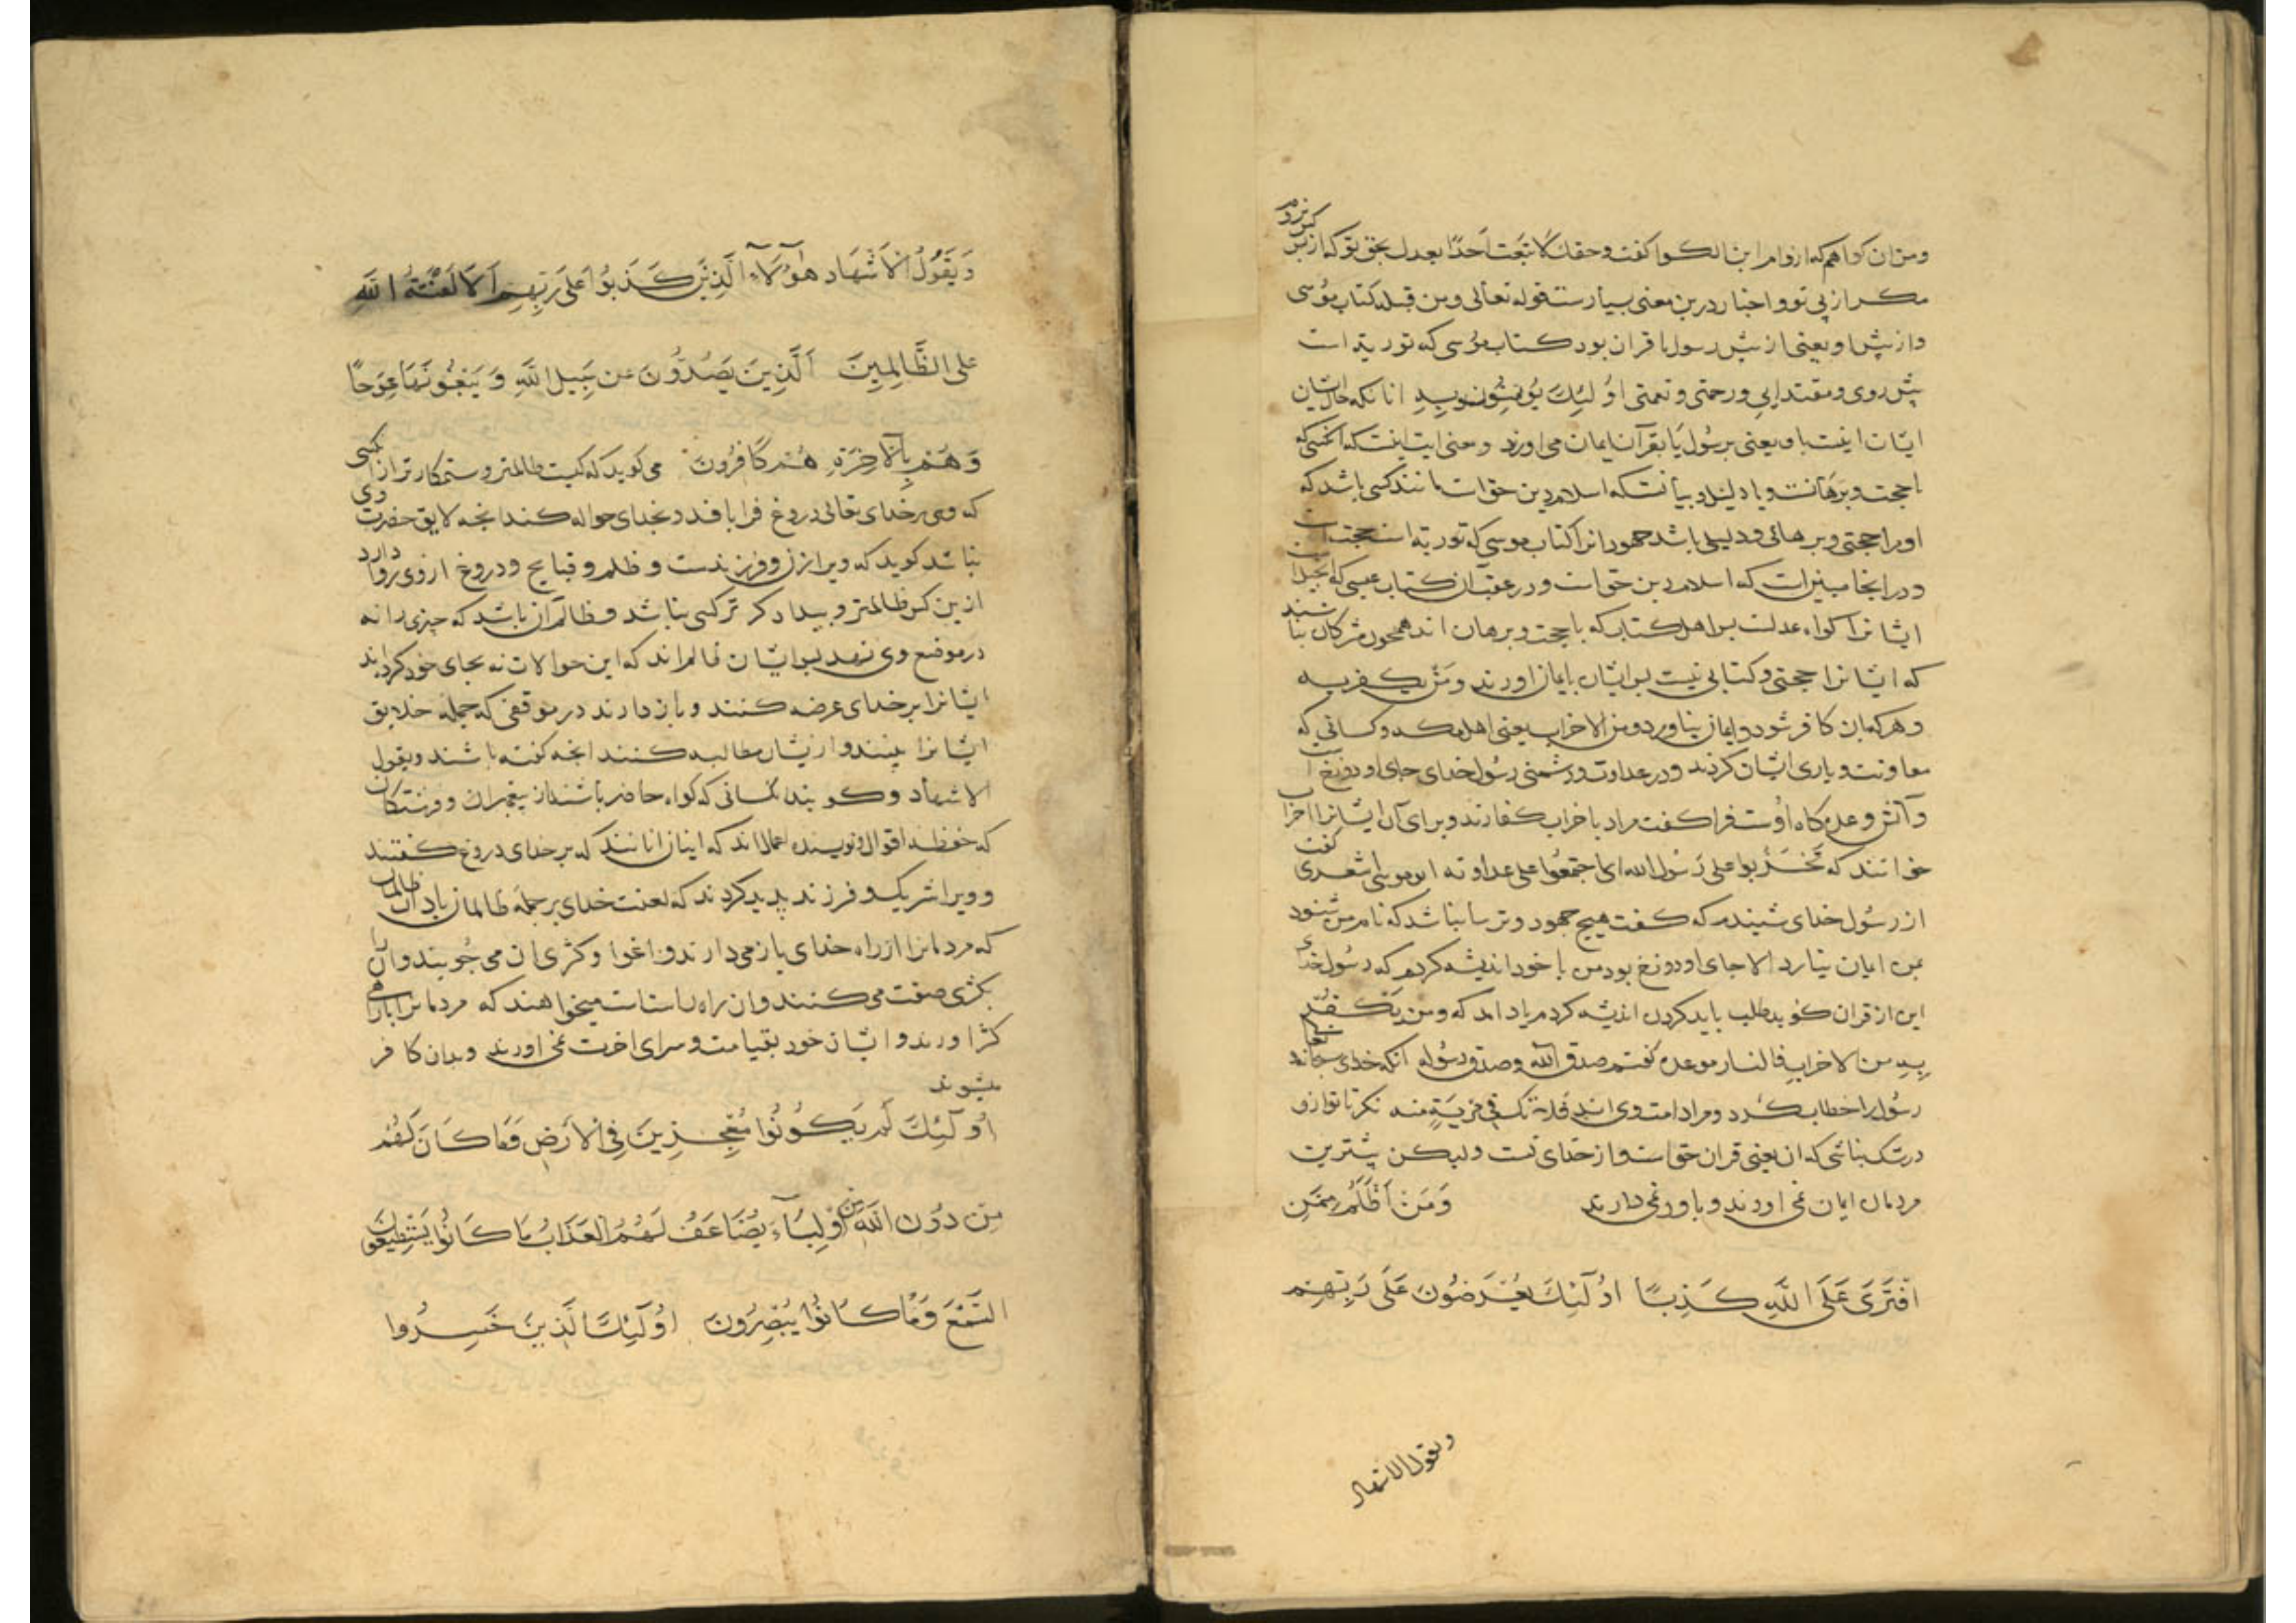 ومن ان کواهم که از وام ابن الکوا کفت وحقك لا تبعت احدًا بعدك بحق تو که از پس کس نروم
مکر از پی تو و اخبار درین معنی بسیارست قوله تعالی ومن قبله کتاب موسی
و از پیش او یعنی از پیش رسول با قران بود کتاب موسی که توریة است
پیش روی و مقتدایی و رحمتی و نعمتی اُولئِكَ یُؤمِنُونَ بِهِ انانکه حال ایشان
ایشان اینست باو یعنی برسول یا بقرآن ایمان می اورند و معنی ایت اینست که انکسی که
با حجت و برهانست و با دلیل و بیانست که اسلام دین حق است مانند کسی باشد که
اورا حجتی و برهانی و دلیلی باشد جهودانرا کتاب موسی که توریة است حجت است
و در انجا مبین است که اسلام دین حق است و در عقب آن کتاب عیسی که انجیل است
ایشانرا کواه عدلست بس اهل کتاب که با حجت و برهان اند همچون مشرکان نباشند
که ایشانرا حجتی و کتابی نیست بس ایشان باید ایمان اورند وَمَنْ یکفر به
و هر که بان کافر شود و ایمان نیاورد ومن الاحزاب یعنی اهل مکه و کسانی که
معاونت و یاری ایشان کردند و در عداوت و دشمنی رسول خدای جای او دوزخ است
و آتش وعده کاه اوست فرا کفت مراد باحزاب کفارند و برای آن ایشانرا احزاب
خوانند که تَحَزَّبوا علی رَسُول الله ای اجتمعُوا علی عداوته ابو موسی اشعری کفت
از رسُول خدای شنیدم که کفت هیچ جهود و ترسا نباشد که نام من شنود
بمن ایمان نیارد الا جای او دوزخ بود من با خود اندیشه کردم که رسُول خدای
این از قران کوید طلب باید کردن اندیشه کردم یادم امد که ومن یَکفُر
بِهِ من الاحزاب فالنار موعده کفتم صدق الله وصدق رسُوله انکه خدای سبحانه وتعالی
رسُول را خطاب کرد و مراد امت وی اند فَلا تَكُ فِی مِریَةٍ منه نکر تا تو ازو
در شک نباشی که ان یعنی قران حق است و از خدای تست ولیکن بیشترین
مردمان ایمان نمی اورند و باور نمی دارند وَمَنْ اَظْلَمُ مِمَّنِ
افْتَرَی عَلَی اللّٰهِ کَذِبًا اُولٓئِكَ یُعْرَضُونَ عَلَی رَبِّهِمْ
ویقول الاشهاد
وَیَقُولُ الْاَشْهَاد هٰٓؤُلَاءِ الَّذِینَ کَذَبُوا عَلَی رَبِّهِمْ اَلَا لَعْنَتُهُ اللّٰهِ
علی الظَّالِمِینَ اَلَّذِینَ یَصُدُّونَ عَن سَبِیلِ اللّٰهِ وَ یَبْغُونَهَا عِوَجًا
وَهُمْ بِالْآخِرَةِ هُمْ کَافِرُونَ می کوید که کیست ظالمتر و ستمکارتر از کسی
که وی بر خدای تعالی دروغ فرا بافد و بخدای حواله کند انجه لایق حضرت وی
نباشد کوید که ویرا زن و فرزندست و ظلم و قبایح و دروغ ازوی روا دارد
ازین کس ظالمتر و بیدادکرتر کسی نباشد و ظالم آن باشد که چیزی را نه
در موضع وی نهد بس ایشان ظالم اند که این حوالات نه بجای خود کرده اند
ایشانرا بر خدای عرضه کنند و باز دارند در موقفی که جمله خلایق
ایشانرا بینند و ازیشان مطالبه کنند انجه کفته باشند ویقول
الاشهاد و کویند کسانی که کواه حاضر باشند از پیغمبران و فرشتکان
که حفظه اقوال و نویسنده اعمال اند که اینان انانند که بر خدای دروغ کفتند
و ویرا شریک و فرزند پدید کردند که لعنت خدای بر جمله ظالمان باد ان ظالمان
که مردمانرا از راه خدای باز می دارند و اغوا و کژی ان می جویند و ان را
بکژی صفت می کنند و ان راه راست است میخواهند که مردمانرا باراهی
کژ اورند و ایشان خود بقیامت و سرای اخرت نمی اورند و بدان کافر
میشوند
اُولٓئِكَ لَمْ یَکُونُوا مُعْجِزِینَ فِی الْاَرْضِ وَمَا کَانَ لَهُمْ
مِنْ دُونِ اللّٰهِ مِنْ اَوْلِیَآءَ یُضَاعَفُ لَهُمُ الْعَذَابُ مَا کَانُوا یَسْتَطِیعُونَ
السَّمْعَ وَمَا کَانُوا یُبْصِرُونَ اُولٓئِكَ الَّذِینَ خَسِرُوا